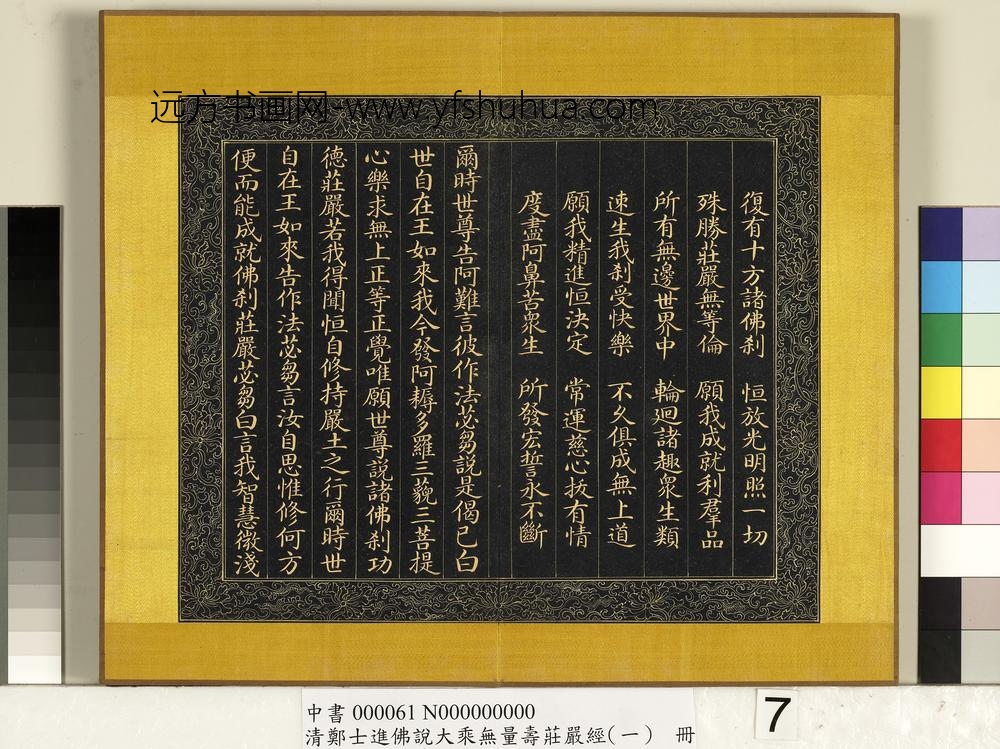 远方书画网-www.yfshuhua.com
復有十方諸佛刹 恒放光明照一切
殊勝莊嚴無等倫 願我成就利羣品
所有無邊世界中 輪迴諸趣衆生類
速生我刹受快樂 不久俱成無上道
願我精進恒決定 常運慈心拔有情
度盡阿鼻苦衆生 所發宏誓永不斷
爾時世尊告阿難言彼作法苾芻說是偈已白
世自在王如來我今發阿耨多羅三藐三菩提
心樂求無上正等正覺唯願世尊説諸佛刹功
德莊嚴若我得聞恒自修持嚴土之行爾時世
自在王如來告作法苾芻言汝自思惟修何方
便而能成就佛刹莊嚴苾芻白言我智慧微淺
中書 000061 N000000000
清鄭士進佛說大乘無量壽莊嚴經(一) 冊
7